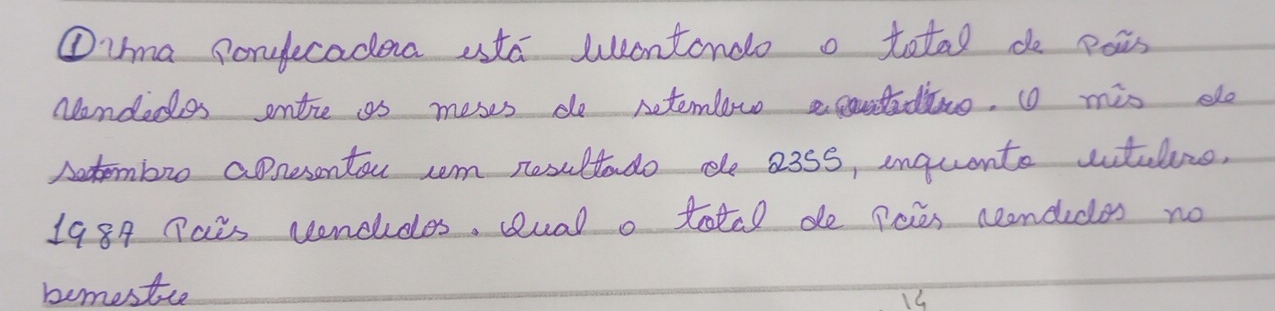 ① Uma Panificadora está levantando o total de Pães
vendidos entre os meses de setembro e outubro. O mês de
setembro aPresentou um resultado de 2355, enquanto outubro.
1987 Pães vendidos. Qual o total de Pães vendidos no
bimestre
14